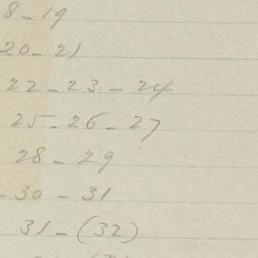 8 - 19
20 - 21
22 - 23 - 24
25 - 26 - 27
28 - 29
- 30 - 31
31 - (32)